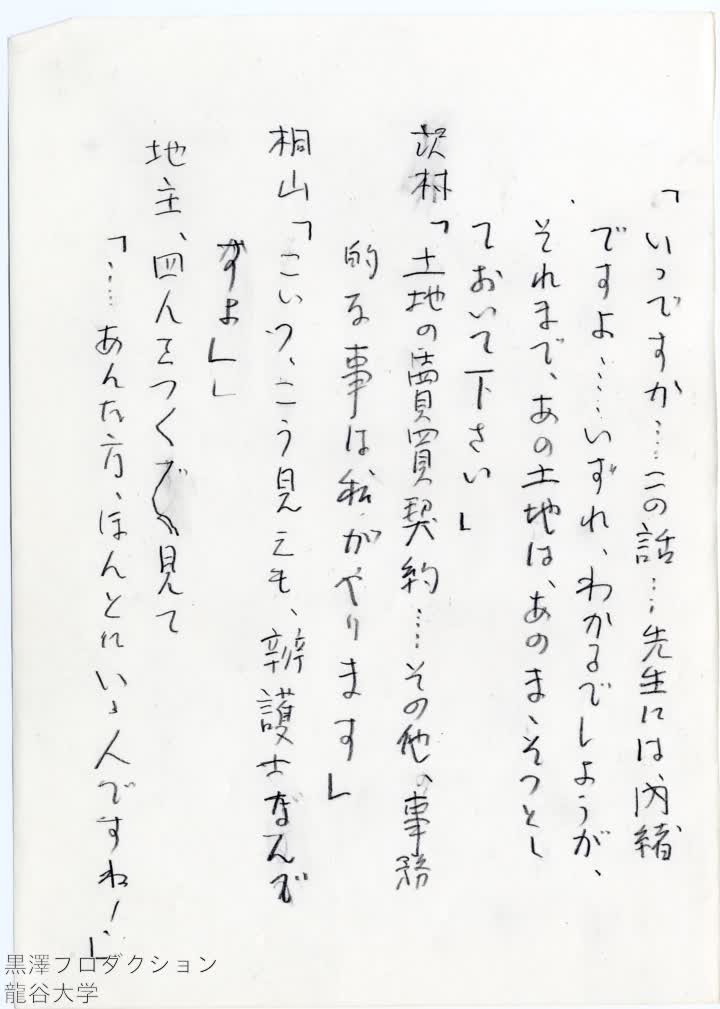 「いゝですか……この話……先生には、内緒
ですよ、……いずれ、わかるでしようが、
それまで、あの土地は、あのまゝそつとし
ておいて下さい」
沢村「土地の賣買契約……その他、事務
的な事は私がやります」
桐山「こいつ、こう見えても、辯護士なんで
すよ」
地主、四人をつくづく見て
「……あんた方、ほんとにいゝ人ですね！」
黒澤プロダクション
龍谷大学